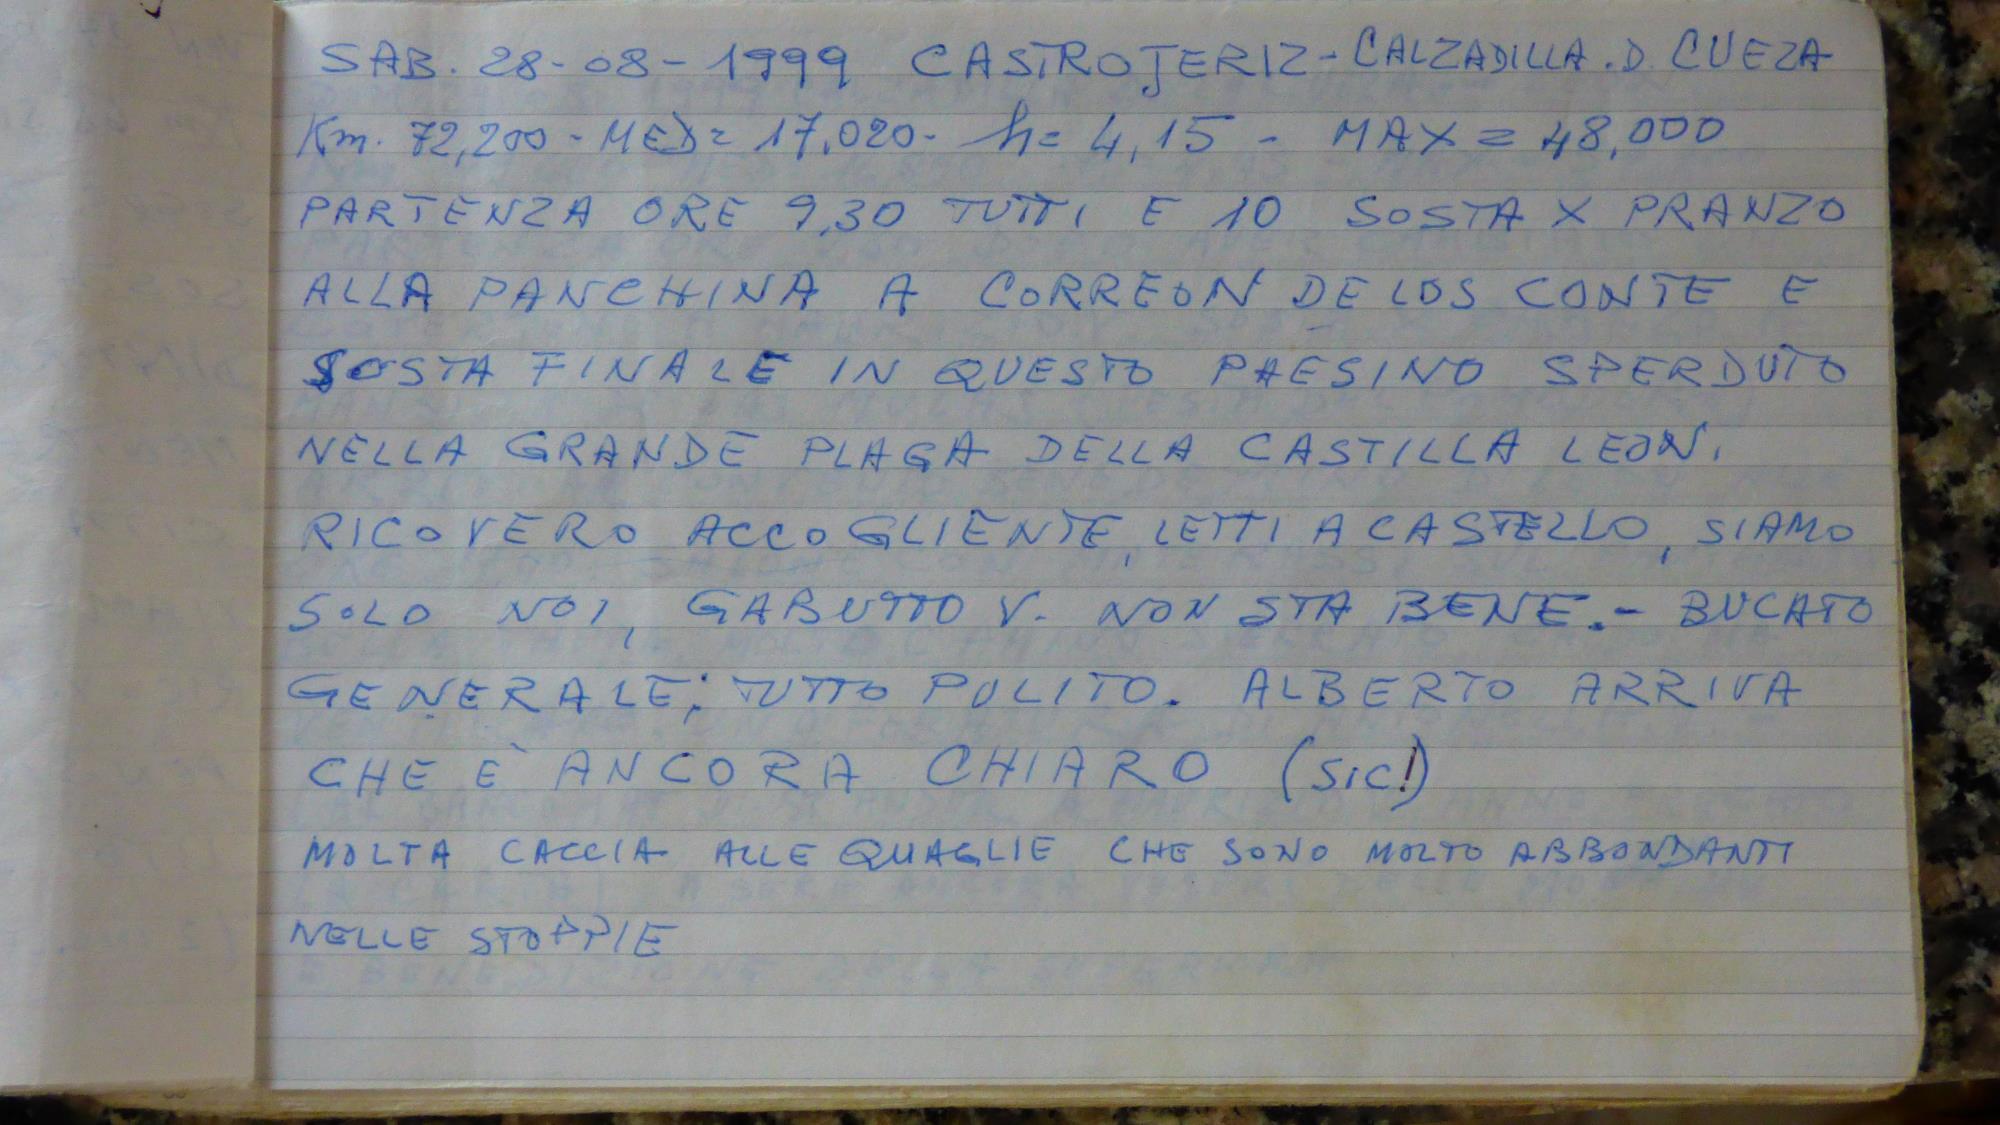 SAB. 28-08-1999 CASTROJERIZ-CALZADILLA.D. CUEZA
Km. 72,200 - MED= 17,020- h= 4,15 - MAX = 48,000
PARTENZA ORE 9,30 TUTTI E 10 SOSTA X PRANZO
ALLA PANCHINA A CORREON DE LOS CONTE E
SOSTA FINALE IN QUESTO PAESINO SPERDUTO
NELLA GRANDE PLAGA DELLA CASTILLA LEON.
RICOVERO ACCOGLIENTE, LETTI A CASTELLO, SIAMO
SOLO NOI, GABUTTO V. NON STA BENE.- BUCATO
GENERALE; TUTTO PULITO. ALBERTO ARRIVA
CHE È ANCORA CHIARO (SIC!)
MOLTA CACCIA ALLE QUAGLIE CHE SONO MOLTO ABBONDANTI
NELLE STOPPIE